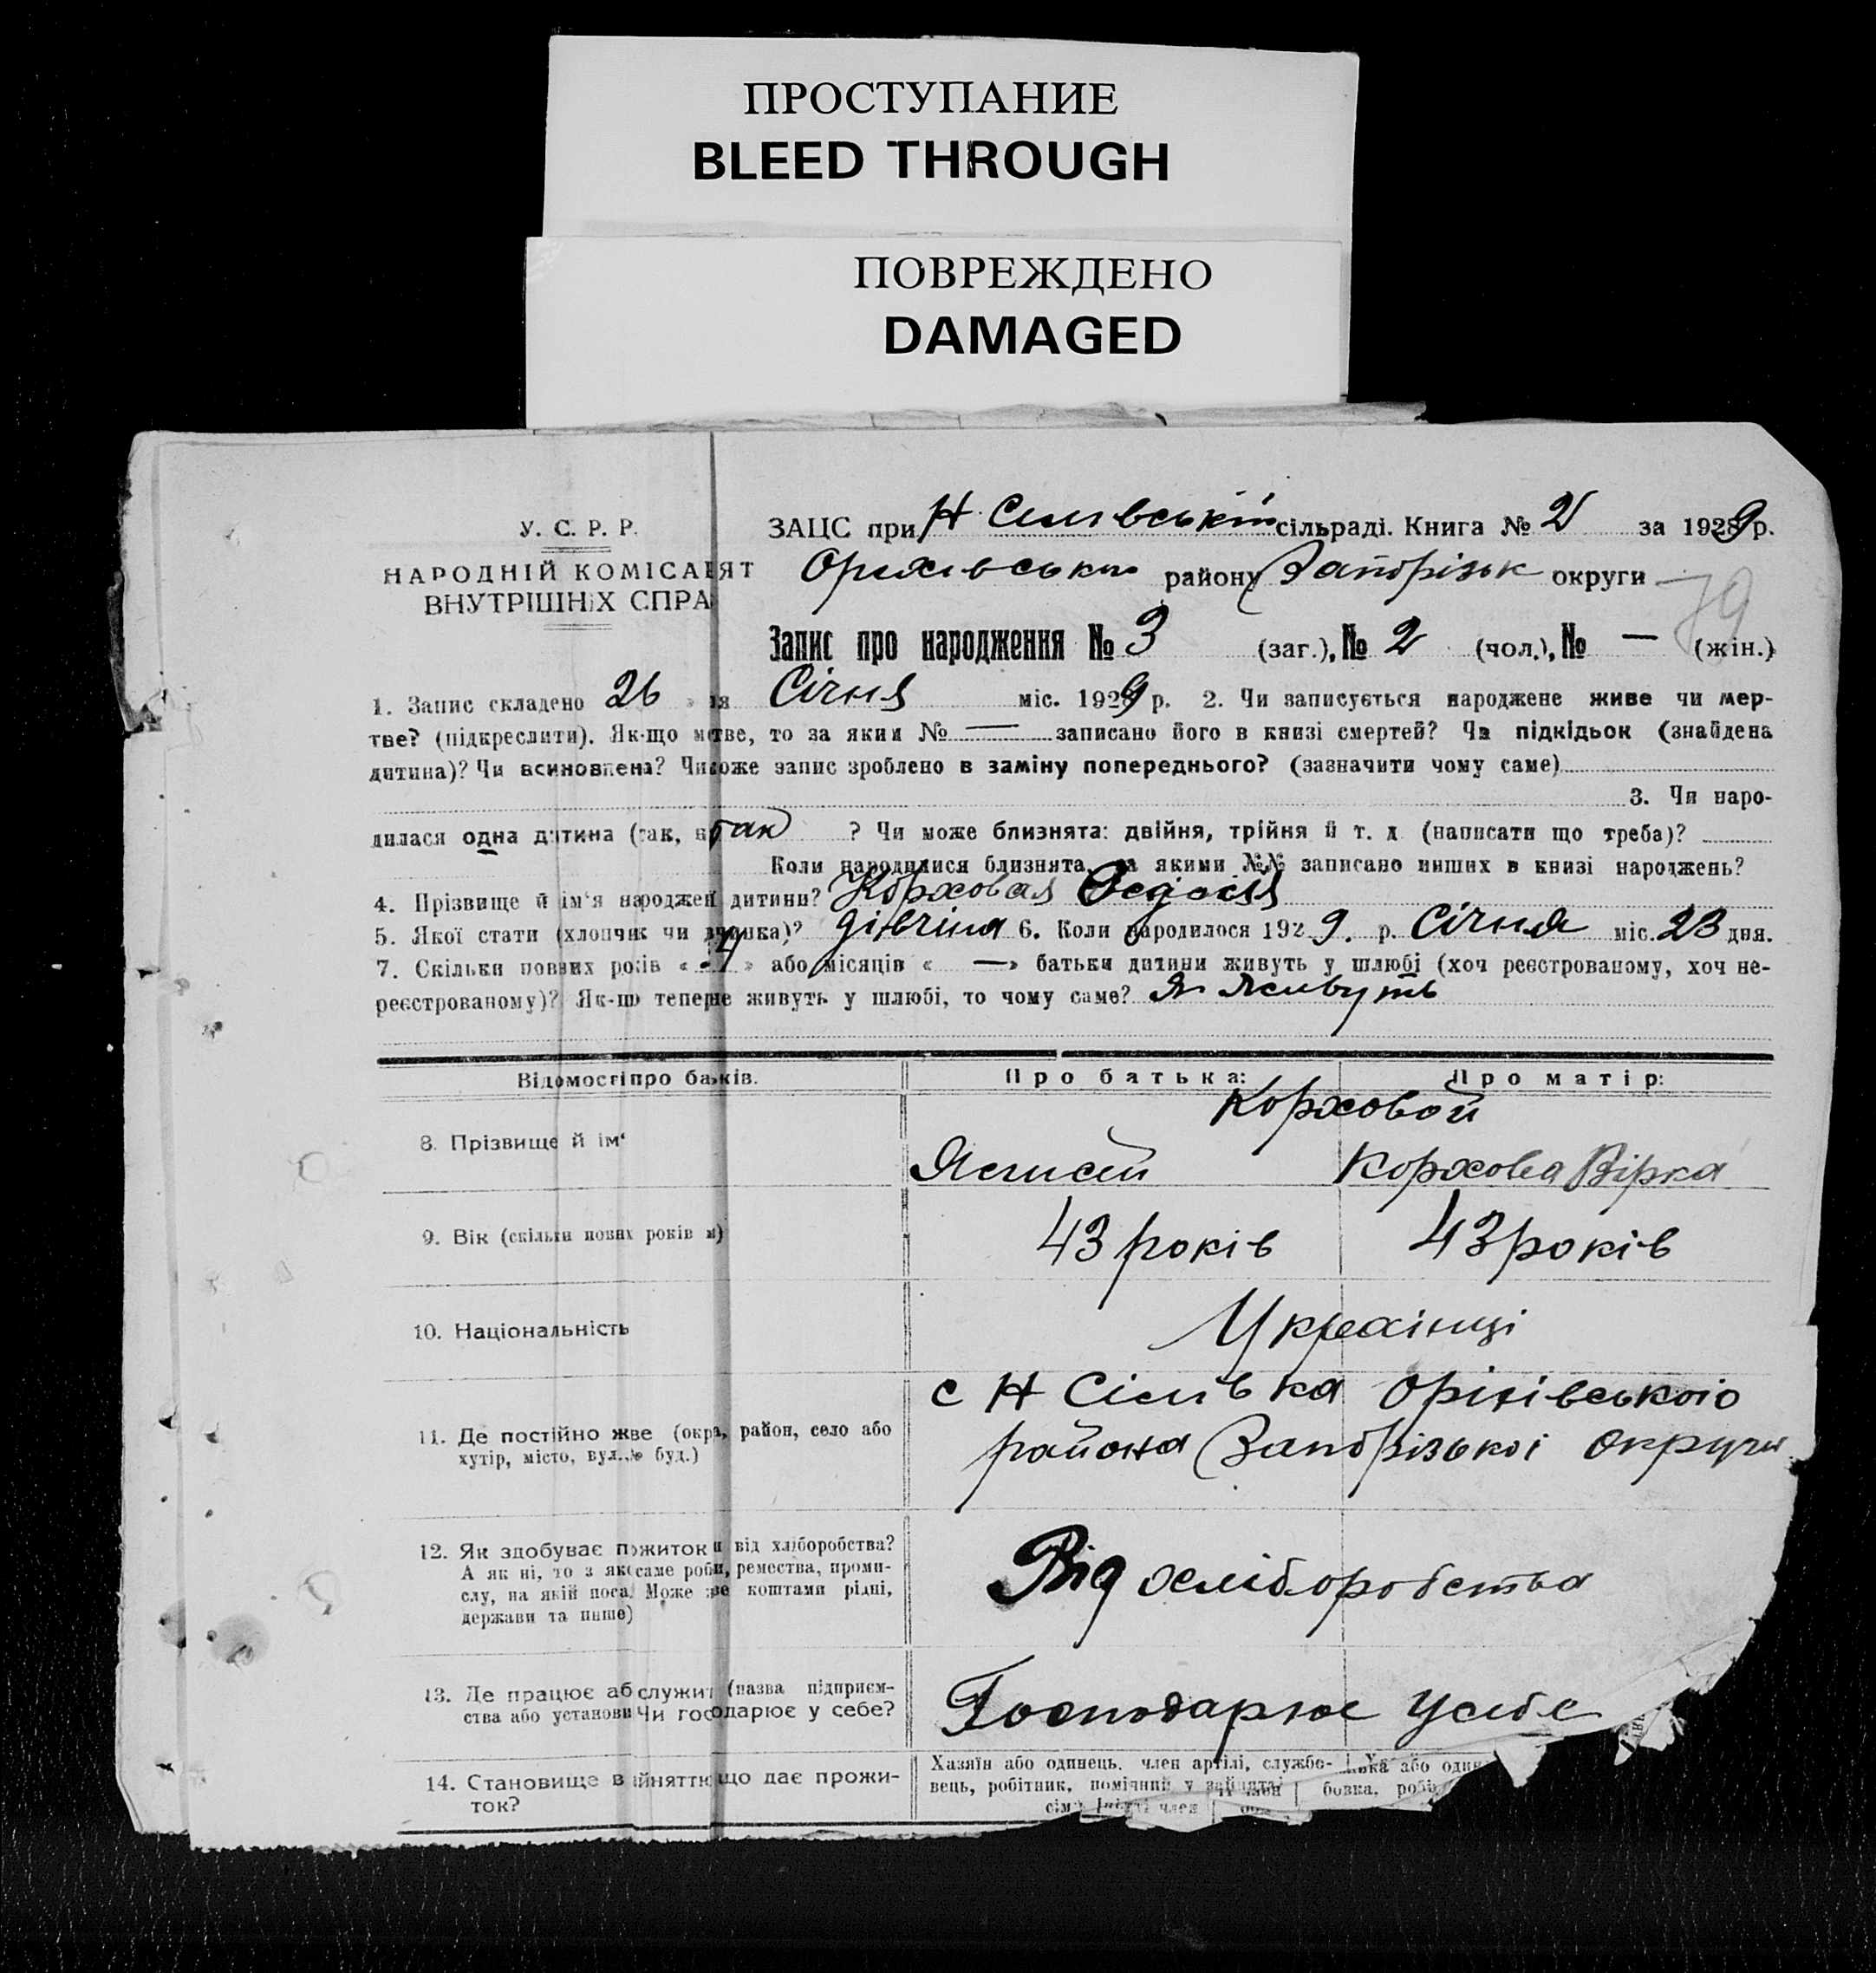 ПРОСТУПАНИЕ
BLEED THROUGH
ПОВРЕЖДЕНО
DAMAGED
У. С. Р. Р.
НАРОДНІЙ КОМІСАРІЯТ
ВНУТРІШНІХ СПРА
ЗАЦС при Н сільраді. Книга № 2 за 1929 р.
району Запорізьк округи
79
Запис про народження № 3 (заг.), № 2 (чол.), № — (жін.)
1. Запис складено 26 Січня міс. 1929 р. 2. Чи записується народжене живе чи мер-
тве? (підкреслити). Як-що тве, то за яким № — записано його в книзі смертей? Чи підкідьок (знайдена
дитина)? Чи всиновлена? Чи оже запис зроблено в заміну попереднього? (зазначити чому саме)
3. Чи наро-
дилася одна дитина (так, так ? Чи може близнята: двійня, трійня й т. д (написати що треба)?
Коли народилися близнята, за якими №№ записано инших в книзі народжень?
4. Прізвище й ім'я народжен дитини?
5. Якої стати (хлопчик чи ? 6. Коли народилося 1929. р. Січня міс. 23 дня.
7. Скільки повних років « » або місяців « — » батьки дитини живуть у шлюбі (хоч реєстрованому, хоч не-
реєстрованому)? Як-що тепер не живуть у шлюбі, то чому саме? живуть
Відомості про ба ків.
Про батька:
Про матір:
Корховой
8. Прізвище й ім'
Корхова Вірка
9. Вік (скільки повних років
43 років
43 років
10. Національність
Українці
11. Де постійно ж ве (окр , район, село або
хутір, місто, вул., № буд.)
с Н Оріхівського
района Запорізької округи
12. Як здобуває п житок від хліборобства?
А як ні, то з як саме роб , ремества, проми-
слу, на якій поса Може ве коштами рідні,
держави та инше)
Від хліборобства
13. Де працює аб служит (назва підприєм-
ства або установи Чи господарює у себе?
Господарює у себе
14. Становище в йнятт що дає прожи-
ток?
Хазяїн або одинець, член артілі, службо-
вець, робітник, помічний у
або один
бовка, робі
член